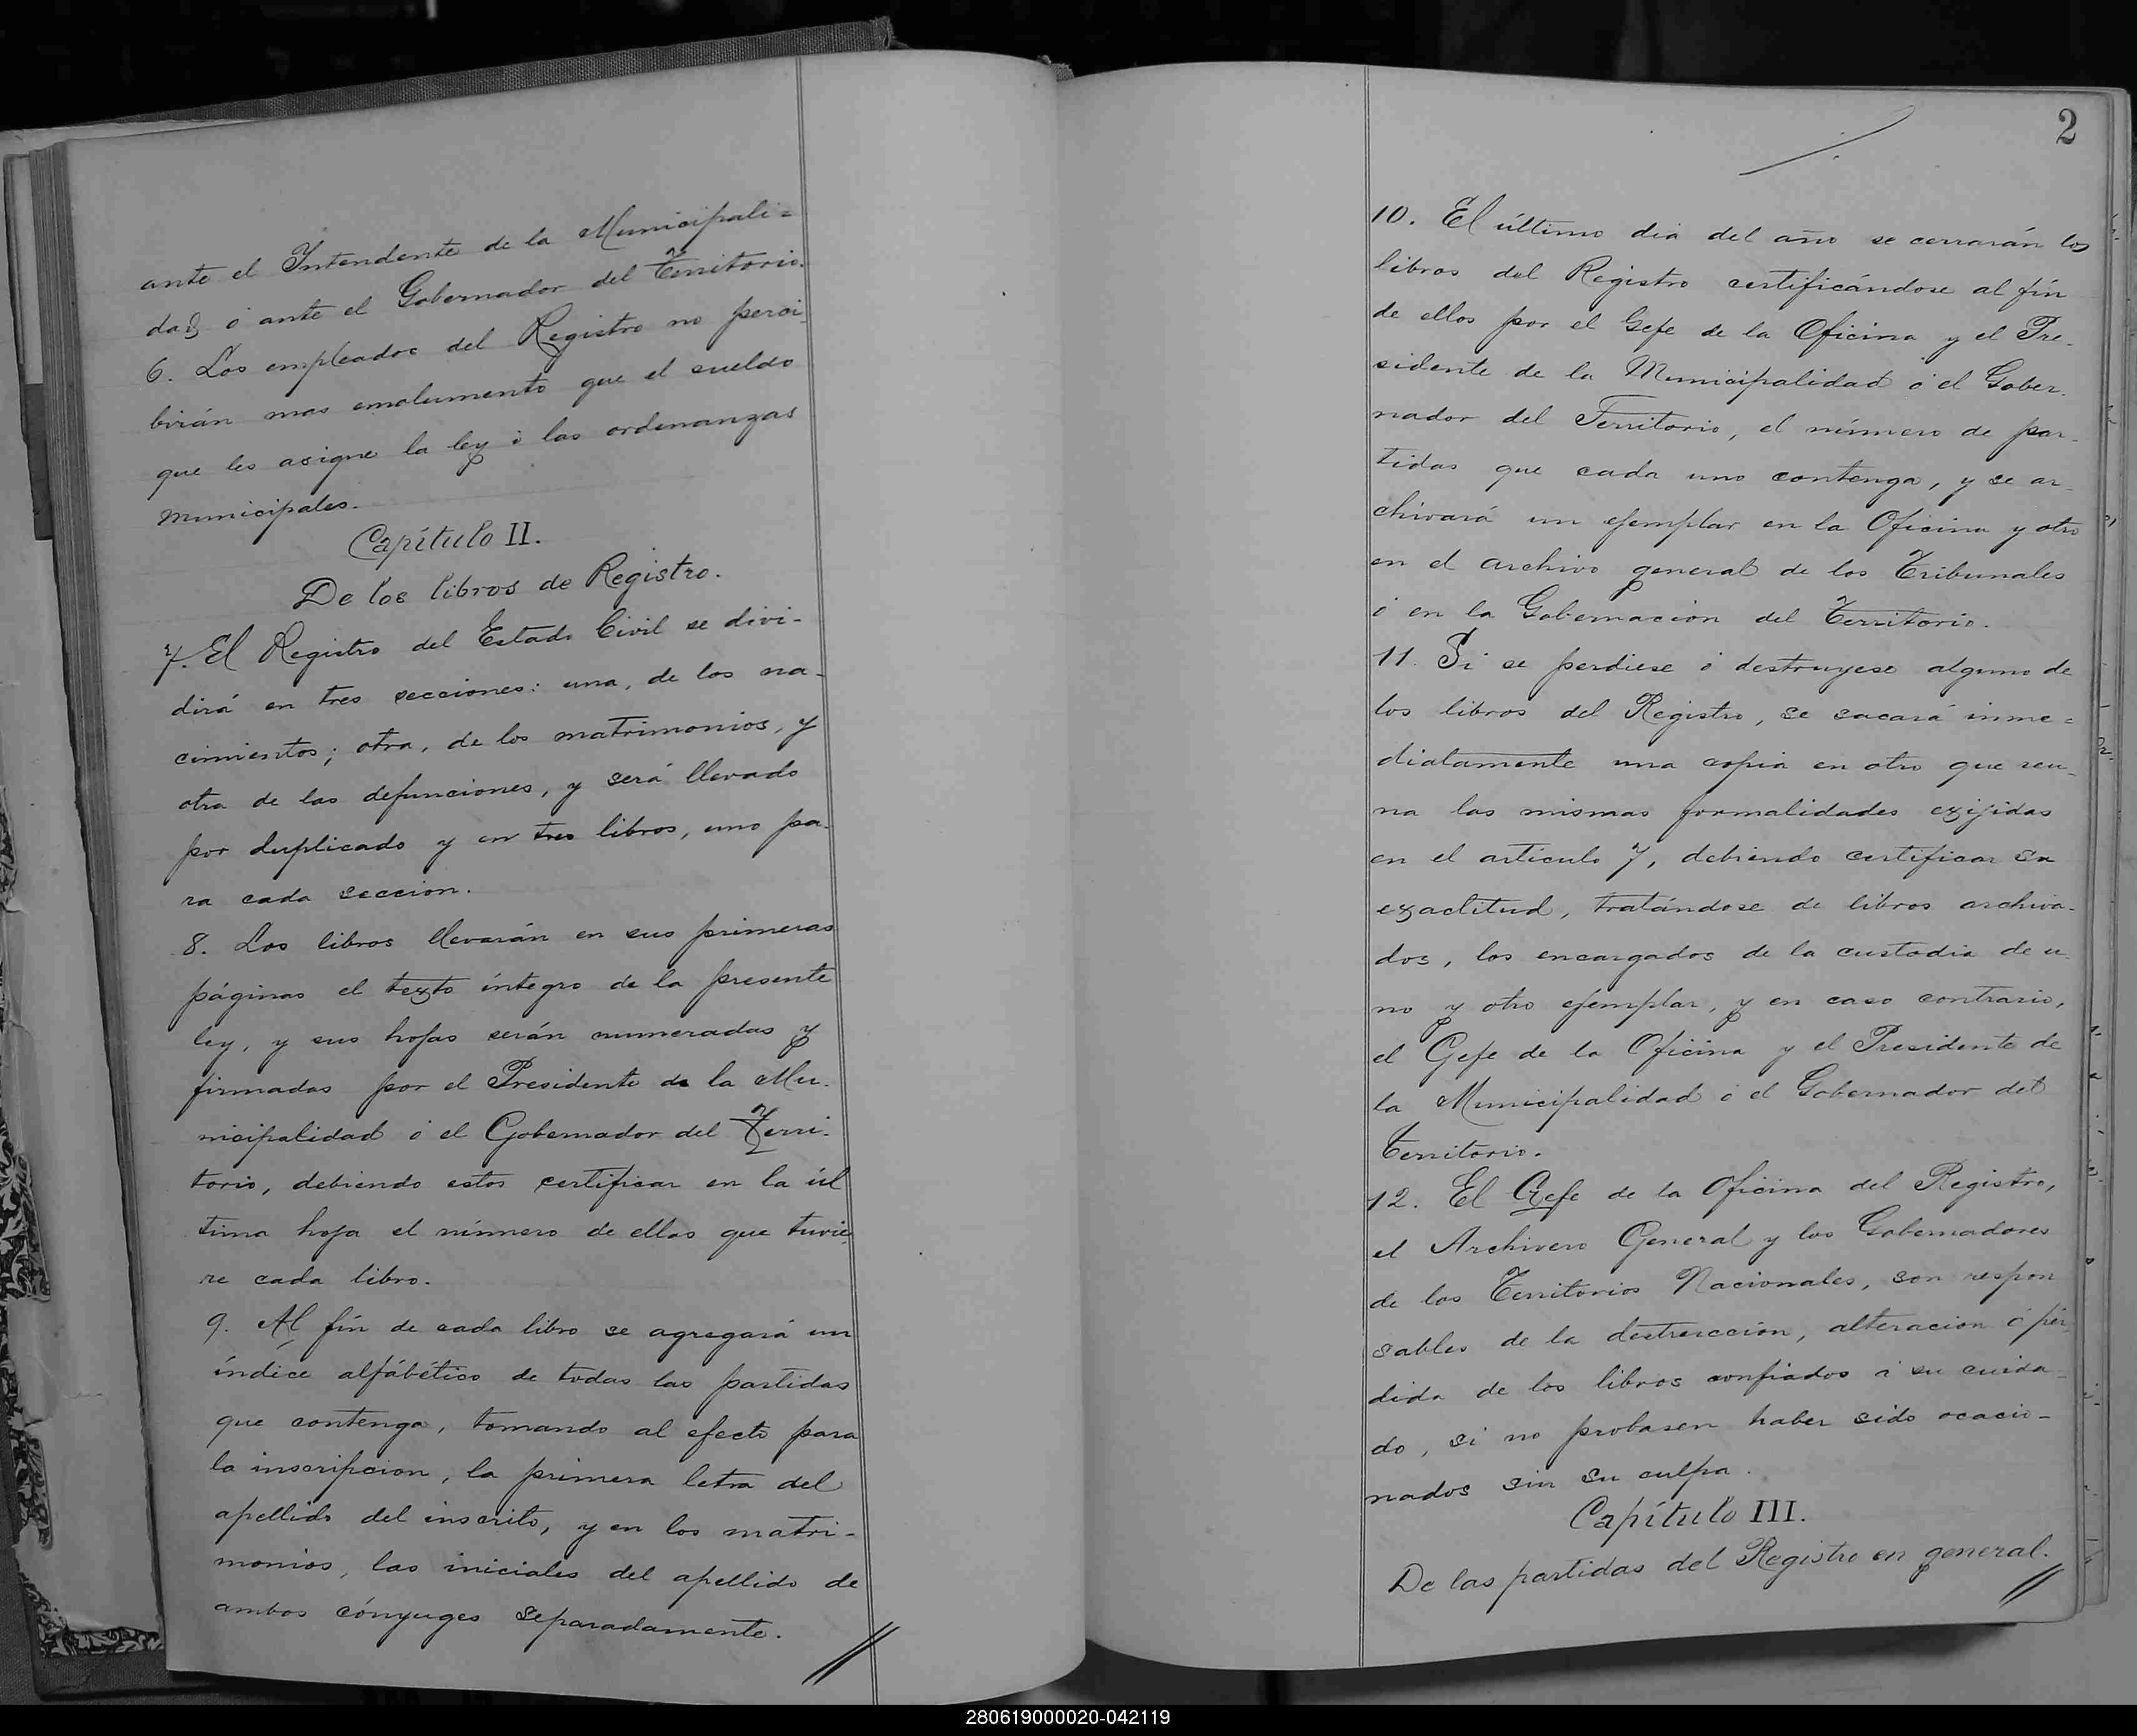 ante el Intendente de la Municipali=
dad ó ante el Gobernador del Territorio.
6. Los empleados del Registro no perci_
birán mas emolumento que el sueldo
que les asigne la ley ó las ordenanzas
municipales.
Capítulo II.
De los libros de Registro.
7. El Registro del Estado Civil se divi-
dirá en tres secciones: una, de los na-
cimientos; otra, de los matrimonios, y
otra de las defunciones, y será llevado
por duplicado y en tres libros, uno pa-
ra cada seccion.
8. Los libros llevarán en sus primeras
páginas el texto íntegro de la presente
ley, y sus hojas serán numeradas y
firmadas por el Presidente de la Mu-
nicipalidad ó el Gobernador del Terri-
torio, debiendo estos certificar en la úl
tima hoja el número de ellas que tuvie
re cada libro.
9. Al fín de cada libro se agregará un
índice alfábético de todas las partidas
que contenga, tomando al efecto para
la inscripcion, la primera letra del
apellido del inscrito, y en los matri-
monios, las iniciales del apellido de
ambos cónyuges separadamente.
2
10. El último dia del año se cerrarán los
libros del Registro certificándose al fín
de ellos por el Gefe de la Oficina y el Pre-
sidente de la Municipalidad ó el Gober-
nador del Territorio, el número de par-
tidas que cada uno contenga, y se ar-
chivará un ejemplar en la Oficina y otro
en el archivo general de los Tribunales
ó en la Gobernacion del Territorio.
11. Si se perdiese ó destruyese alguno de
los libros del Registro, se sacará inme=
diatamente una copia en otro que reu-
na las mismas formalidades exijidas
en el articulo 7, debiendo certificar su
exactitud, tratándose de libros archiva-
dos, los encargados de la custodia de u-
no y otro ejemplar, y en caso contrario,
el Gefe de la Oficina y el Presidente de
la Municipalidad ó el Gobernador del
Territorio.
12. El Gefe de la Oficina del Registro,
el Archivero General y los Gobernadores
de los Territorios Nacionales, son respon
sables de la destruccion, alteracion ó pér-
dida de los libros confiados á su cuida-
do, si no probasen haber sido ocacio-
nados sin su culpa.
Capítulo III.
De las partidas del Registro en general.
280619000020-042119